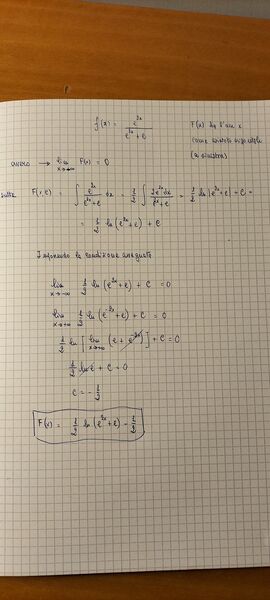 f(x) = e^{2x} / (e^{2x} + e)
F(x) ha l'asse x
come asintoto orizzontale
(a sinistra)
ovvero → lim_{x→-∞} F(x) = 0
F(x,c) = ∫ e^{2x} / (e^{2x} + e) dx = 1/2 ∫ 2e^{2x} dx / (e^{2x} + e) = 1/2 ln(e^{2x} + e) + C =
= 1/2 ln(e^{2x} + e) + C
Imponendo la condizione assegnata
lim_{x→-∞} 1/2 ln(e^{2x} + e) + C = 0
lim_{x→+∞} 1/2 ln(e^{-2x} + e) + C = 0
1/2 ln [lim_{x→+∞} (e + e^{-2x})] + C = 0
1/2 ln e + C = 0
C = -1/2
F(x) = 1/2 ln(e^{2x} + e) - 1/2